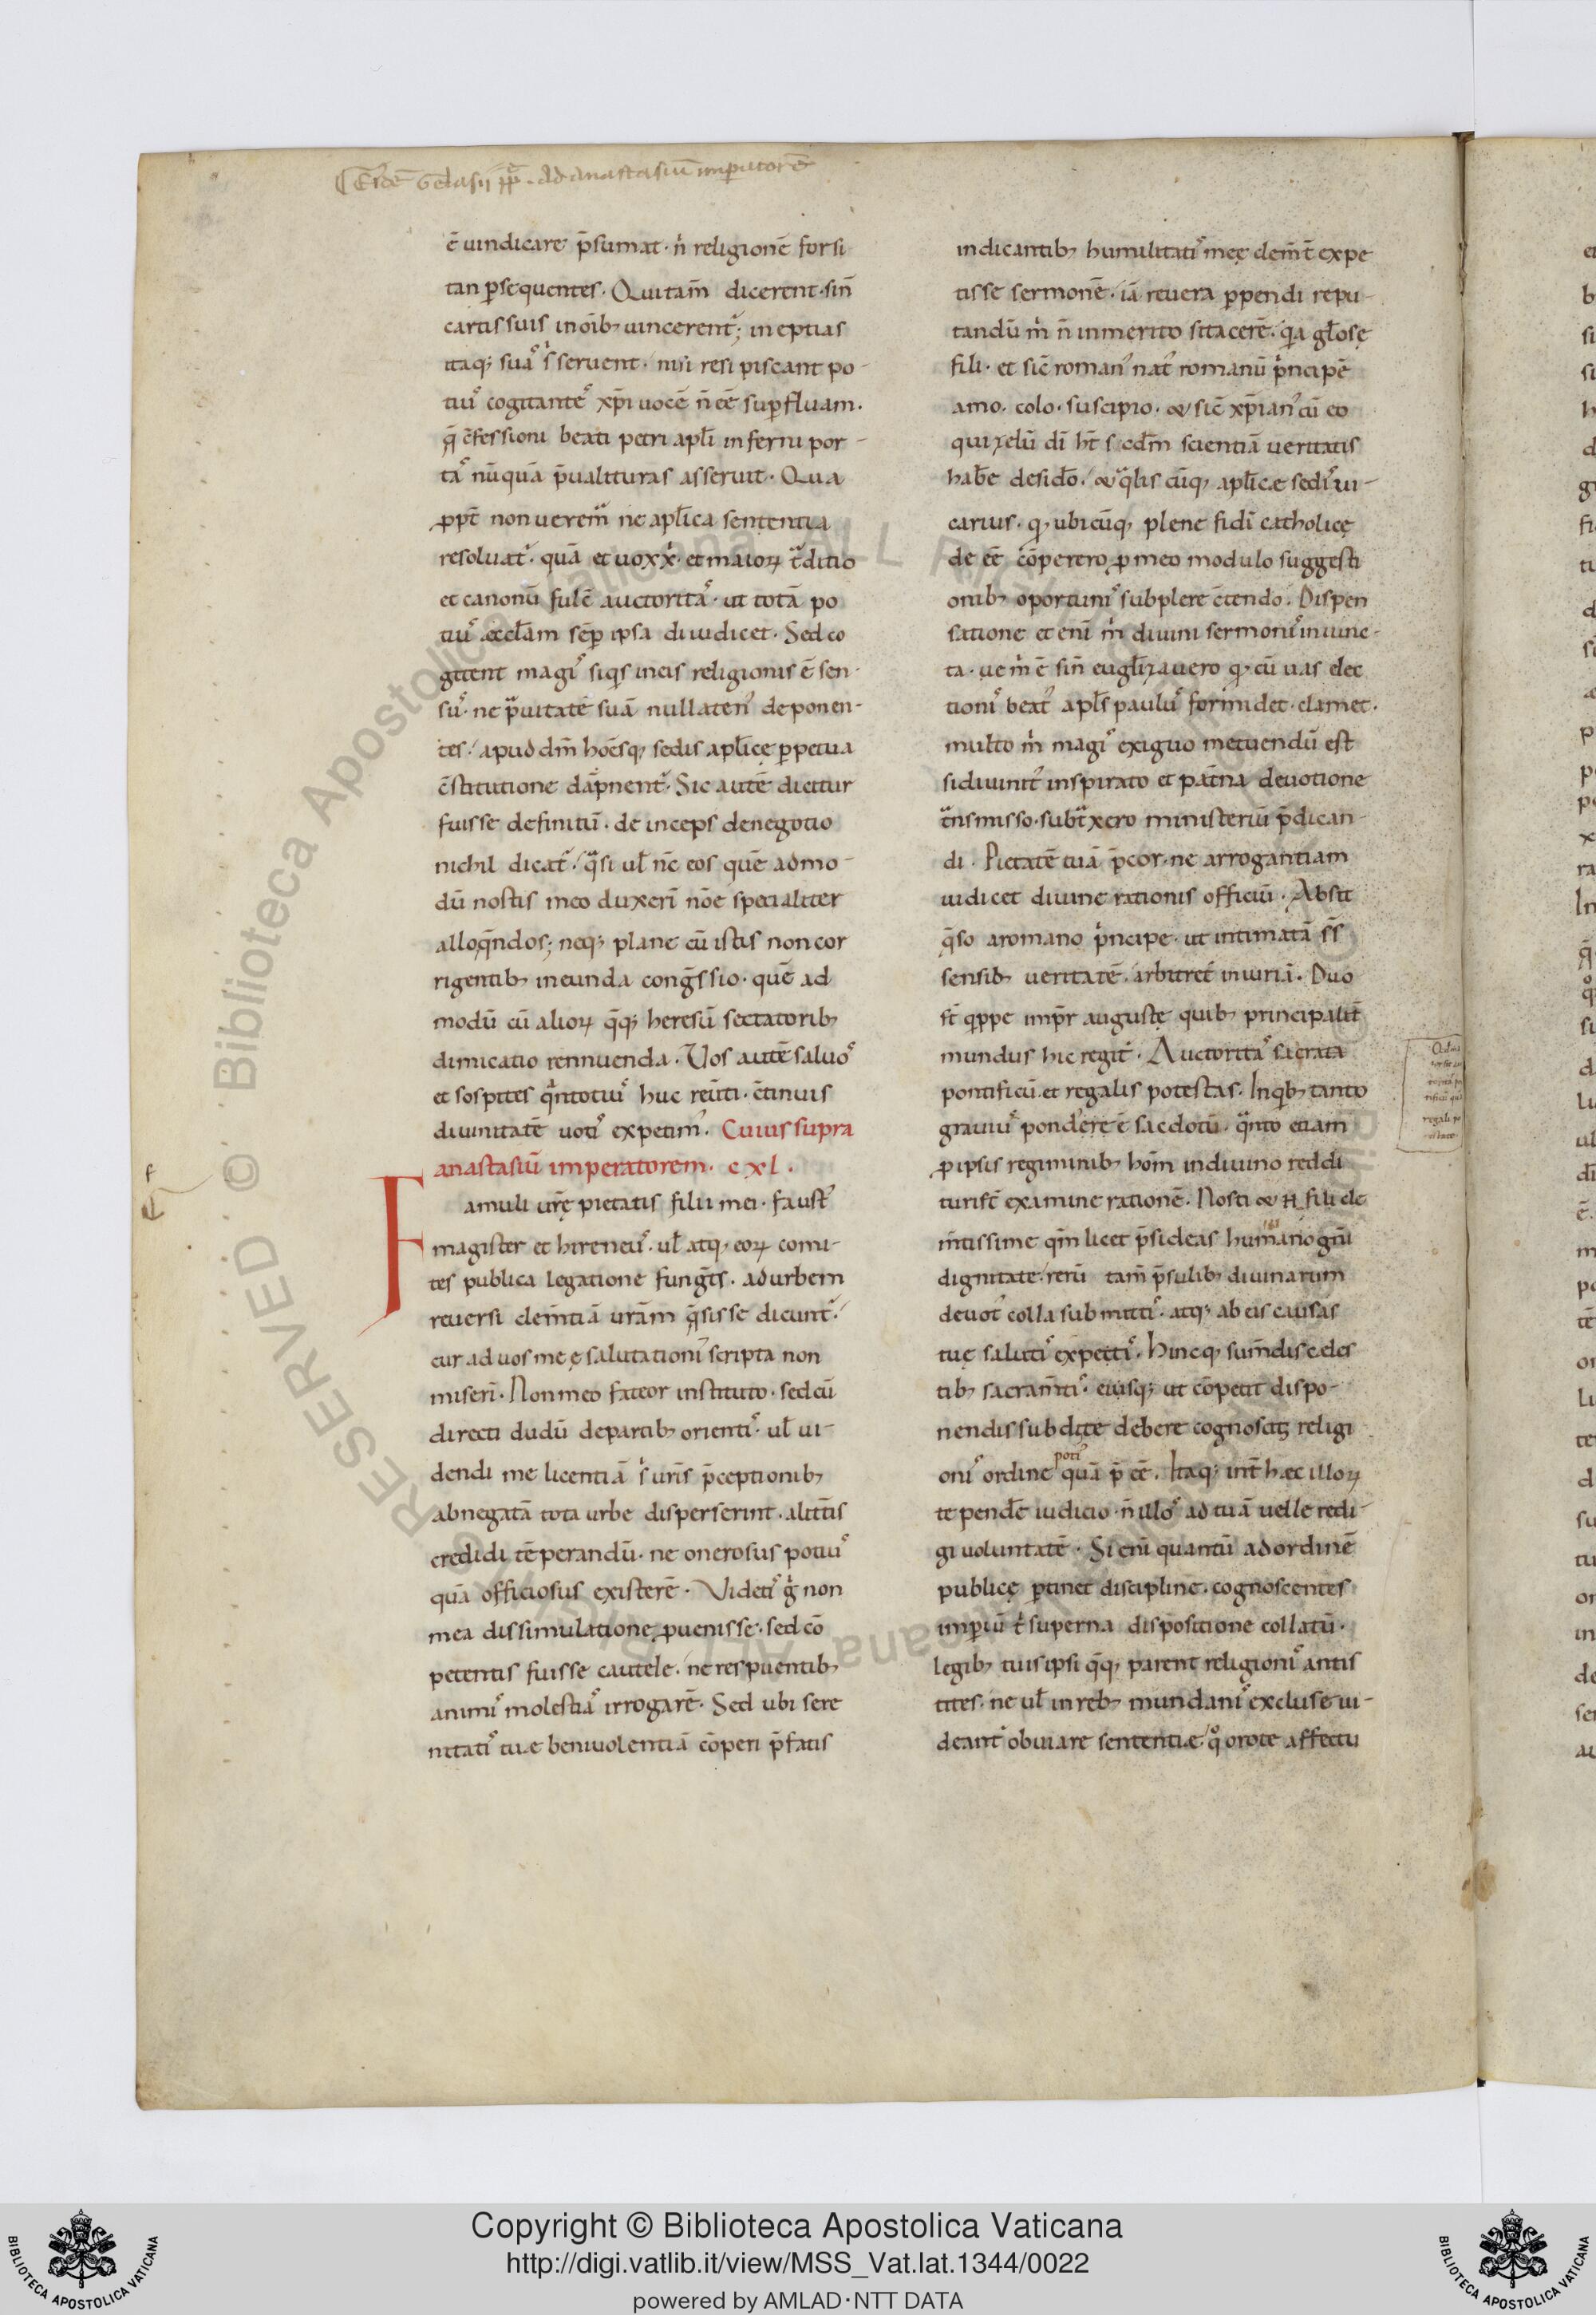 Gelasii pp. ad anastasiū imperatorē
ē uindicare p̄sumat · ń religionē forsi
tan ꝑsequentes. Qui tam̄ dicerent · sin̄
cartis suis in oīb; uincerent᷑; ineptias
itaq; suaˢ s᷑ seruent · nisi resipiscant po-
tiuˢ cogitanteˢ xp̄i uocē n̄ eē suꝑfluam.
q̄ c̄fessioni beati petri apl̄i inferni por-
taˢ nūquā p̄ualituras asseruit. Qua
ꝓpt̄ non ueremͣ ne apl̄ica sententia
resoluat᷑. quā et uox x᷑ · et maioꝝ tͣditio
et canonū fulc̄ auctoritaˢ · ut totā po
tiuˢ æccl̄am sēꝑ ipsa diiudicet. Sed co
gitent magiˢ siqͥs in eis religionis ē sen-
suˢ · ne pͣuitatē suā nullatenꝰ deponen-
tes / apud dm̄ hōesq; sedis apl̄icę ꝑpetua
c̄stitutione dāpnent᷑. Sic autē dicitur
fuisse definitū · deinceps de negotio
nichil dicat᷑ / qͣsi ul̄ nc̄ eos quē admo-
dū nostis meo duxerī nōe specialiter
alloq̄ndos; neq; plane cū istis non cor
rigentib; ineunda congs̄sio · quē ad
modū cū alioꝝ q̄q; heresū sectatorib;
dimicatio rennuenda. Vos autē saluoˢ
et sospites qͣntotiuˢ huc reūti · c̄tinuis
diuinitatē uotiˢ expetimꝰ. Cuius supra
anastasiū imperatorem. cxl.
Famuli ur̄ę pietatis filii mei · faustꝰ
magister et hireneuˢ · ul̄ atq; eoꝝ comi-
tes publica legatione fung̅t̅s · ad urbem
reuersi clem̄tiā urām q̄sisse dicunt᷑ /
cur ad uos meę salutationiˢ scripta non
miserī. Non meo fateor instituto · sed cū
directi dudū de partib; orientiˢ · ul̄ ui-
dendi me licentiā s᷑ ur̄is p̄ceptionib;
abnegatā tota urbe disperserint · alit̄tis
credidi tēperandū · ne onerosus potiuˢ
quā officiosus existerē. Videtiˢ g᷑ non
mea dissimulatione ꝓuenisse · sed cō
petentis fuisse cautele · ne respuentib;
animiˢ molestiaˢ irrogarē. Sed ubi sere
nitatiˢ tuæ beniuolentiā cōperi p̄fatis
indicantib; humilitatiˢ meę clem̄t̄ expe
tisse sermonē · iā reuera ꝑpendi repu-
tandū m᷑ n̄ inmerito si tacerē · qͥa gl̄osę
fili · et sic̄ romanꝰ natꝰ romanū pͥncipē
amo · colo · suscipio · & sic̄ xp̄ianꝰ cū eo
qui zelū dī ht̄ s̄cdm̄ scientiā ueritatis
hab̄e desid̄o / & qͣlis cūq; apl̄icæ sediˢ ui-
carius · q; ubicūq; plene fidī catholicę
de eē cōperero ꝓ meo modulo suggesti
onib; oportuniˢ subplere c̄tendo. Dispen
satione et enī m᷑ diuini sermoniˢ iniunc-
ta · ue m᷑ ē sin̄ eugl̄izauero q; cū uas elec
tioniˢ beatꝰ apl̄s pauluˢ formidet · clamet ·
multo m᷑ magiˢ exiguo metuendū est
si diuinitꝰ inspirato et pat̄na deuotione
tͣnsmisso · subtͣxero ministeriū p̄dican-
di. Pietatē tuā p̄cor · ne arrogantiam
iudicet diuine rationis officiū. Absit
q̄so a romano pͥncipe · ut intimatā s̄s̄
sensib; ueritatē · arbitret᷑ iniuriā. Duo
st̄ qͥppe imp̄r augustę quib; principalit̄
mundus hic regit᷑. Auctoritaˢ sacrata
pontificū · et regalis potestas. In qͥb; tanto
grauiuˢ pondere ē sacdotū · qͣnto etiam
ꝓ ipsis regiminib; hom̄ in diuino reddi
turi st̄ examine rationē. Nosti & n̄ fili cle
m̄tissime qm̄ licet p̄sideas humano gn̄i
dignitate / rerū tam̄ p̄sulib; diuinarum
deuotꝰ colla submittiˢ · atq; ab eis causas
tuę salutiˢ expectiˢ. Hincq; sum̄dis celes
tib; sacram̄tiˢ · eiusq; ut cōpetit dispo-
nendis subdi te debere cognoscis religi
oniˢ ordine potiˢ quā p̄ eē. Itaq; int̄ hæc illoꝝ
te pend̄e iudicio · n̄ illoˢ ad tuā uelle redi-
gi uoluntatē. Si enī quantū ad ordinē
publicę ꝑtinet disciplinę · cognoscentes
imꝑiū t᷑ superna dispositione collatū ·
legib; tuis ipsi q̄q; parent religioniˢ antis
tites · ne ul̄ in reb; mundaniˢ excluse ui-
deant᷑ obuiare sententiæ / qͦ oro te affectu
regali po
RESERVED © Biblioteca Apostolica Vaticana ALL RIGHTS
Copyright © Biblioteca Apostolica Vaticana
http://digi.vatlib.it/view/MSS_Vat.lat.1344/0022
powered by AMLAD·NTT DATA
BIBLIOTECA APOSTOLICA VATICANA
BIBLIOTECA APOSTOLICA VATICANA